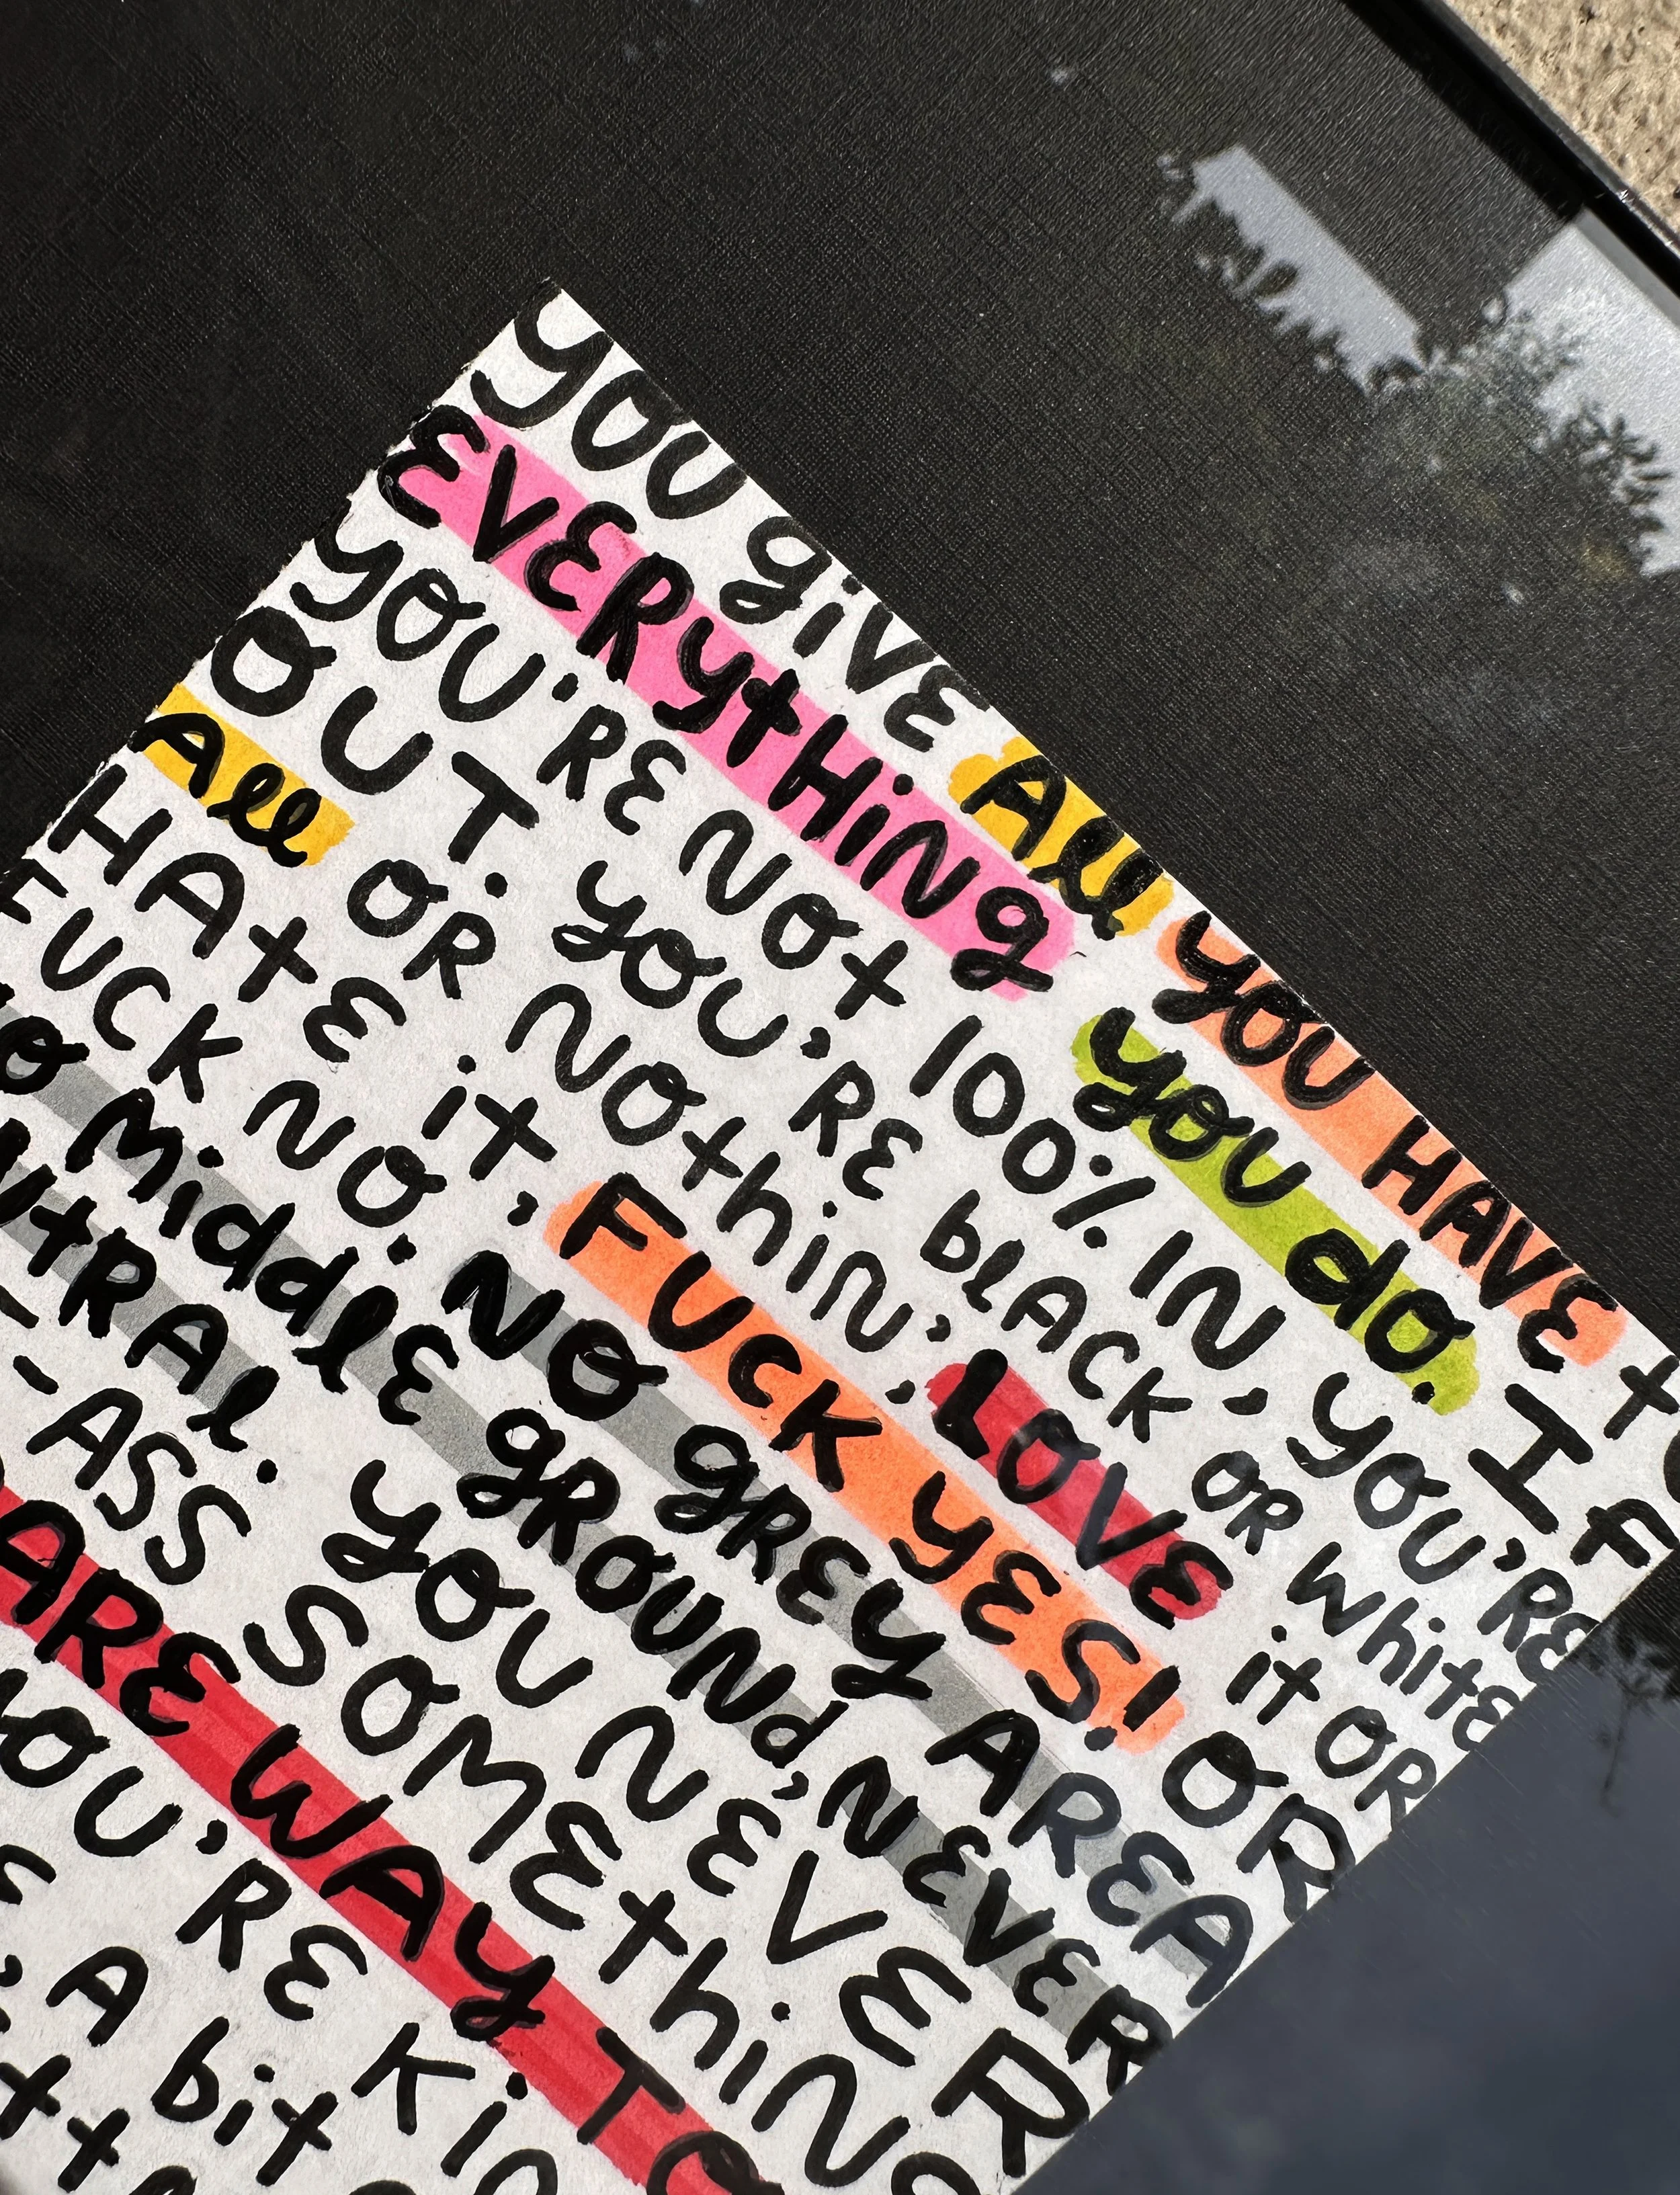 you givE All you HAVE to
EVERythiNg you do. IF
you'RE Not 100% IN, you'RE
OUT. you'RE blACK OR WhitE
All OR Nothin', LOVE it OR
HAtE it, FUCK YES! OR
FUCK NO. NO gREY AREA
NO MiddlE gROUNd, NEVER
YOU NEVER
ASS SOMEthiNg
CARE WAY
YOU'RE
A bit